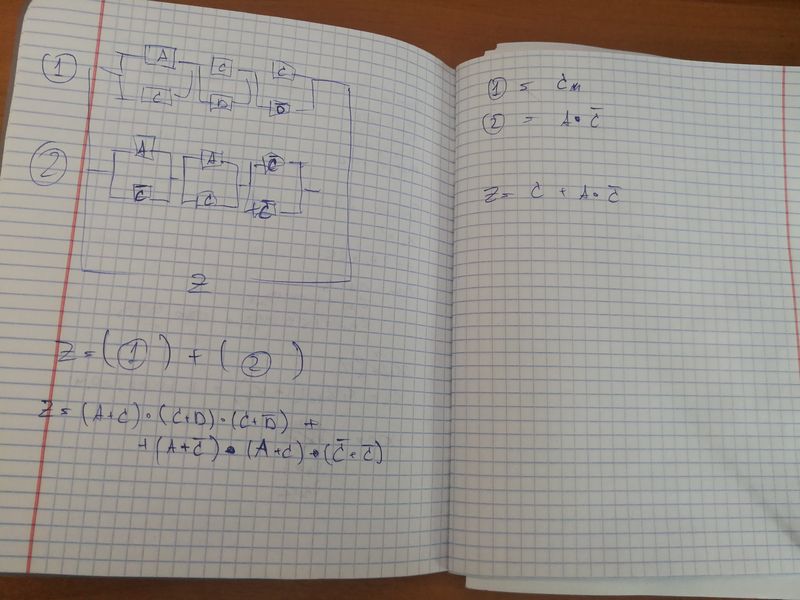 ① A C C
C D D̅
② A A C̅
C̅ C +C̅
Z
Z = (①) + (②)
Z = (A+C)·(C+D)·(C+D̅) +
+(A+C̅)·(A+C)·(C̅+C̅)
① =
② = A·C̅
Z = C + A·C̅